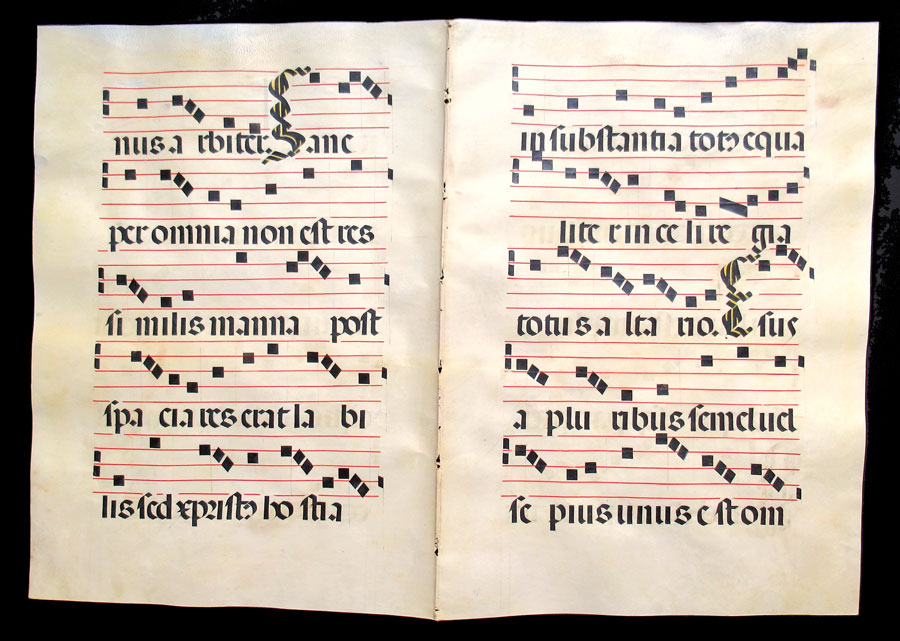 nus a rbiter. Sanc
per omnia non est res
si milis manna post
spa cia res erat la bi
lis sed xpristꝰ ho stia
in substantia totꝰ equa
lite r in ce li re gia
totu s a lta rio. Esus
a plu ribus semel uel
se pius unus e st om